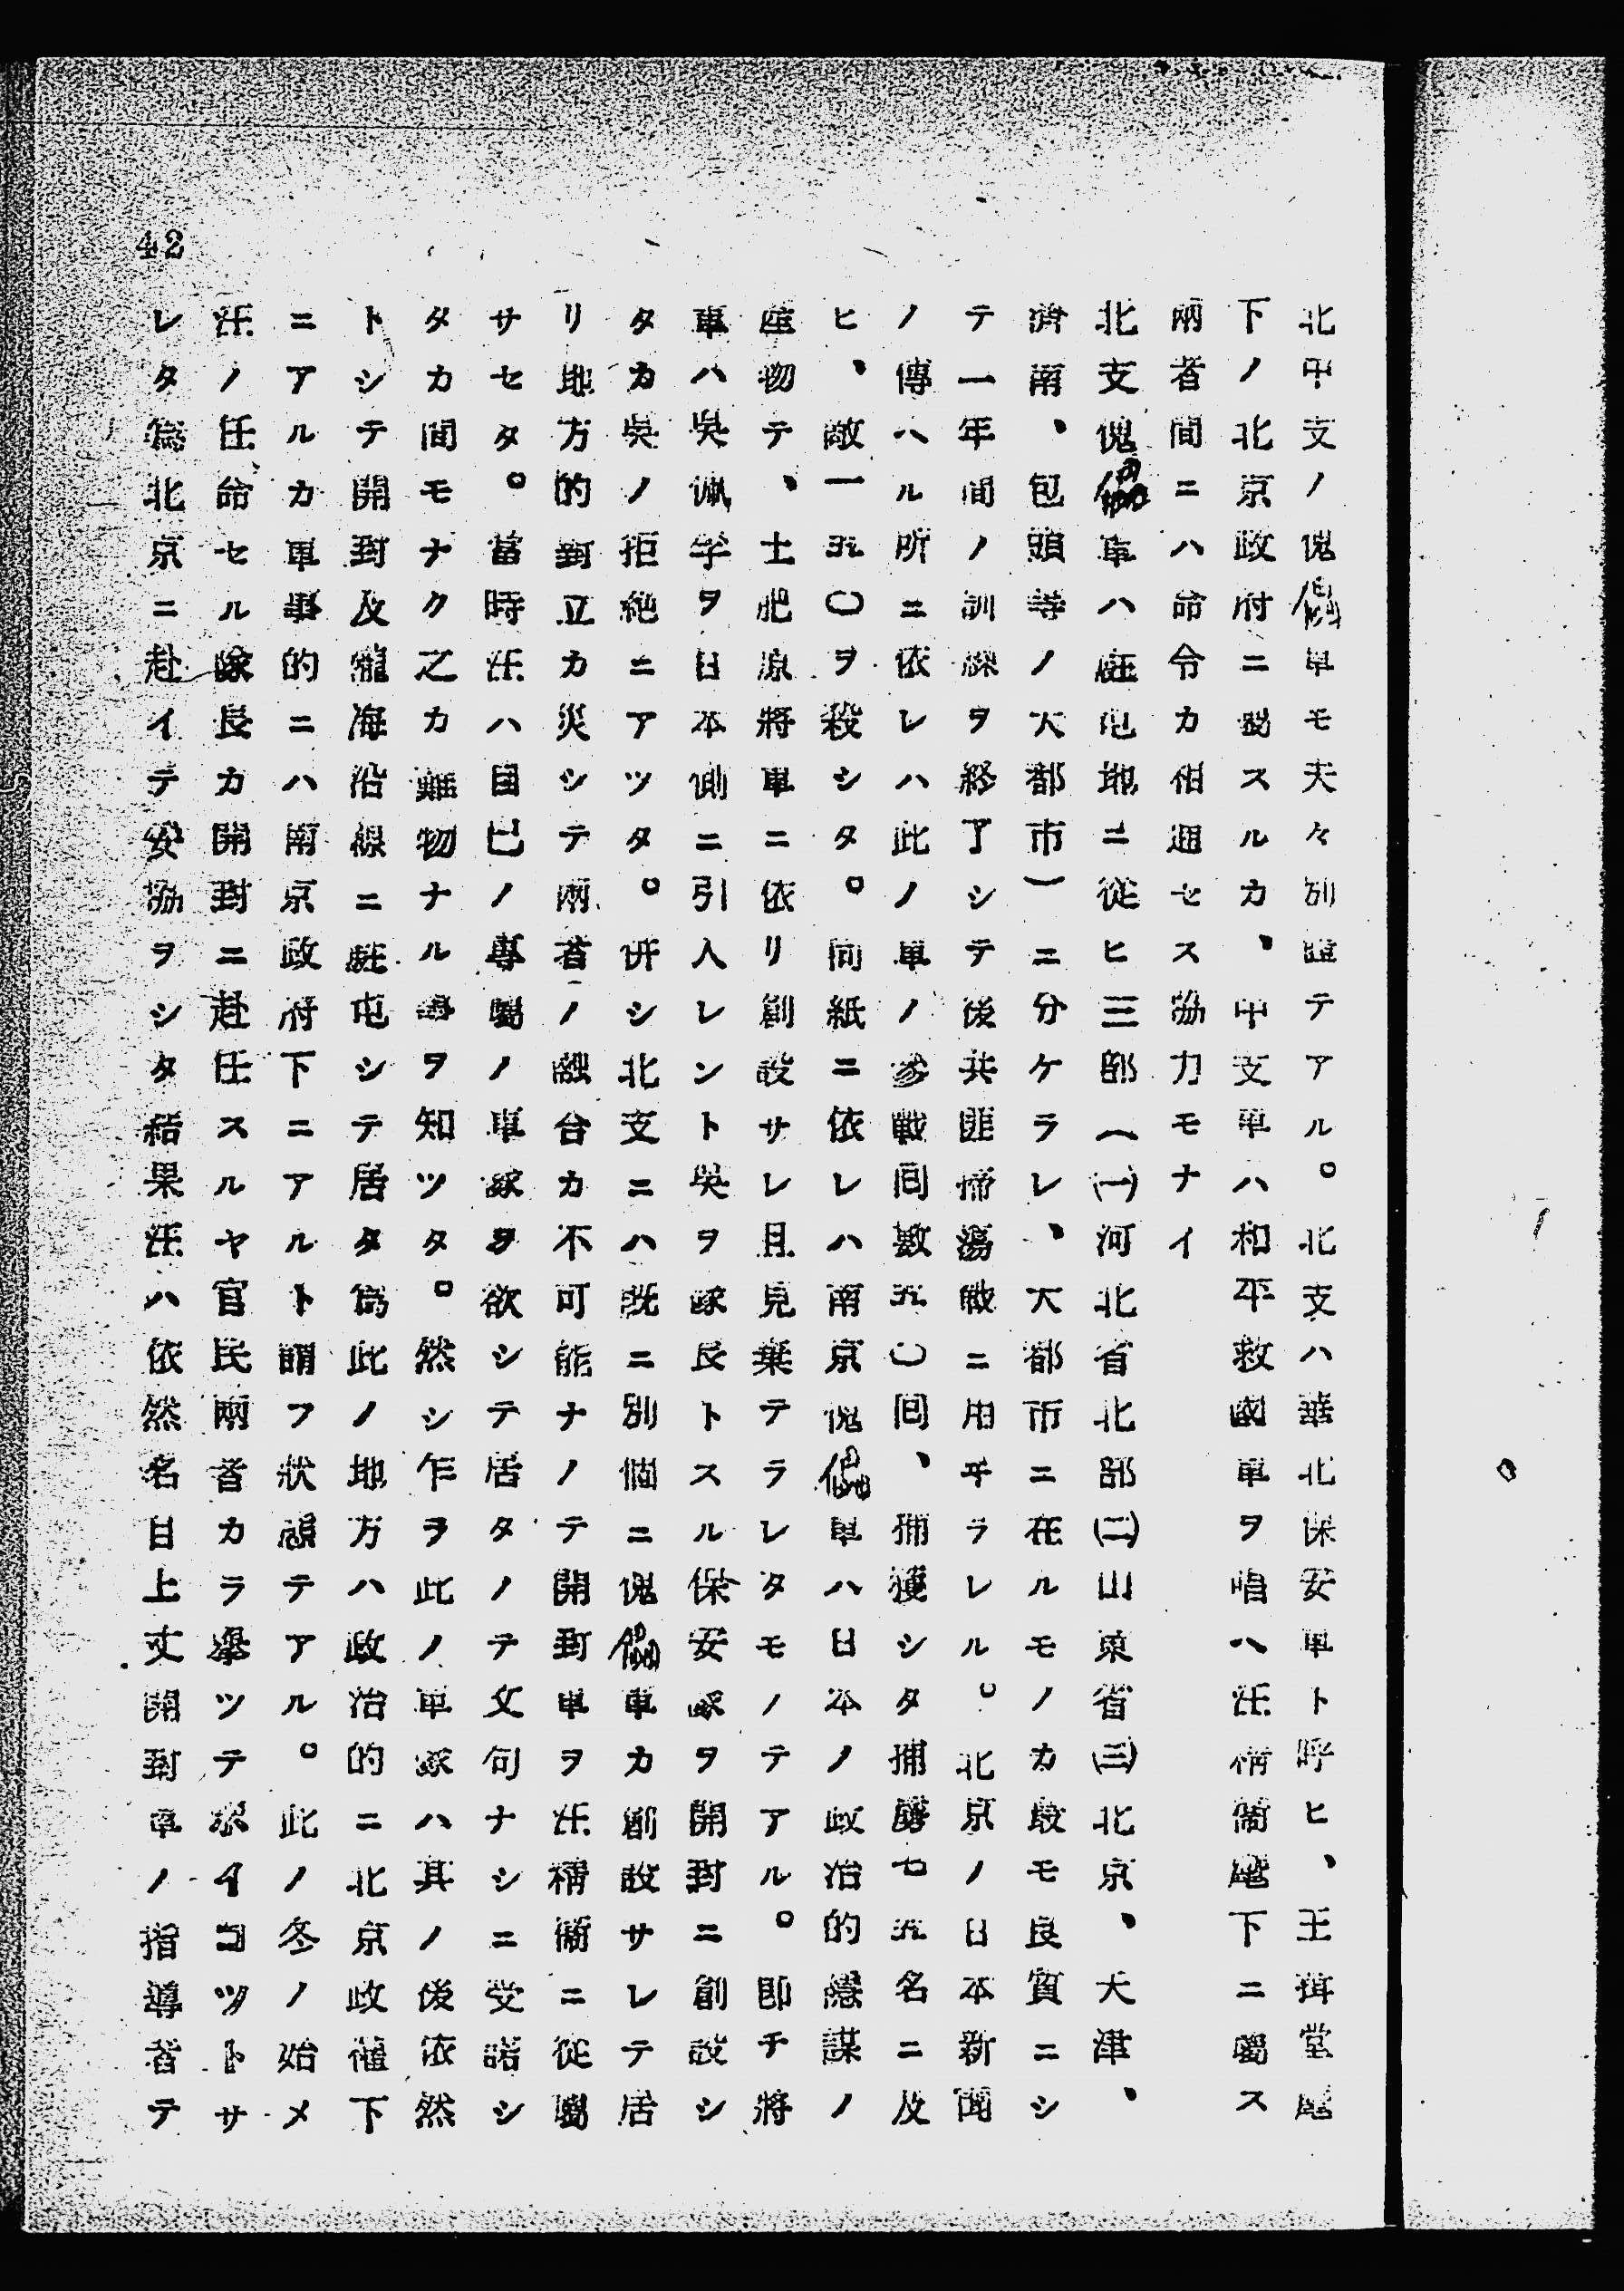 42
北中支ノ傀儡軍モ夫々別箇テアル。北支ハ華北保安軍ト呼ヒ、王揖堂麾
下ノ北京政府ニ屬スルカ、中支軍ハ和平救國軍ヲ唱ハ汪精衞麾下ニ屬ス
兩者間ニハ命令カ相通セス協力モナイ
北支傀儡軍ハ駐屯地ニ從ヒ三部(㈠河北省北部㈡山東省㈢北京、天津、
濟南、包頭等ノ大都市)ニ分ケラレ、大都市ニ在ルモノカ最モ良質ニシ
テ一年間ノ訓練ヲ終了シテ後共匪掃蕩戰ニ用ヰラレル。北京ノ日本新聞
ノ傳ハル所ニ依レハ此ノ軍ノ參戰囘數五〇囘、捕獲シタ捕虜七五名ニ及
ヒ、敵一五〇ヲ殺シタ。同紙ニ依レハ南京傀儡軍ハ日本ノ政治的陰謀ノ
產物テ、土肥原將軍ニ依リ創設サレ且見棄テラレタモノテアル。即チ將
軍ハ吳佩孚ヲ日本側ニ引入レント吳ヲ隊長トスル保安隊ヲ開封ニ創設シ
タカ吳ノ拒絕ニアツタ。併シ北支ニハ既ニ別個ニ傀儡軍カ創設サレテ居
リ地方的對立カ災シテ兩者ノ融合カ不可能ナノテ開封軍ヲ汪精衞ニ從屬
サセタ。當時汪ハ自己ノ專屬ノ軍隊ヲ欲シテ居タノテ文句ナシニ受諾シ
タカ間モナク之カ難物ナル事ヲ知ツタ。然シ乍ラ此ノ軍隊ハ其ノ後依然
トシテ開封及隴海沿線ニ駐屯シテ居タ爲此ノ地方ハ政治的ニ北京政權下
ニアルカ軍事的ニハ南京政府下ニアルト謂フ狀態テアル。此ノ冬ノ始メ
汪ノ任命セル隊長カ開封ニ赴任スルヤ官民兩者カラ擧ツテ
レタ爲北京ニ赴イテ妥協ヲシタ結果汪ハ依然名目上丈開封軍ノ指導者テ